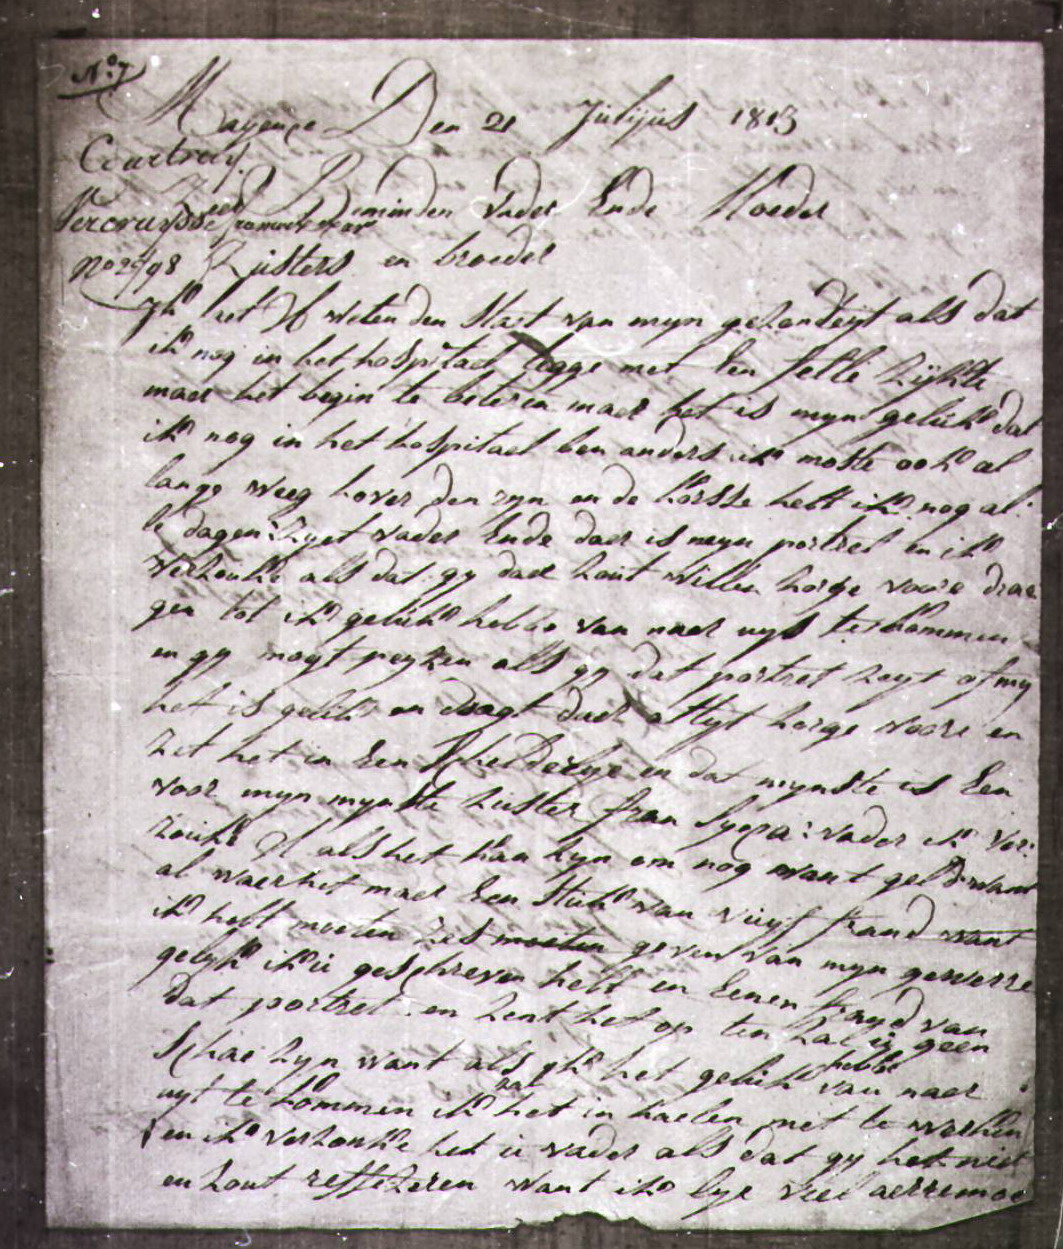 N.° 7
Mayence Den 21 Julijus 1813
Courtray.
Beminden vader Ende Moeder
Vercruysse
N° 2798 Zusters en broeder
Ik laet U weten den staet van myn gezondeyt als dat
ik nog in het hospitael legge met een felle zijkte
maer het begin te beteren maer het is myn geluk dat
ik nog in het hospitael ben anders ik moste ook al
lange weeg hover den ryn en de korsse hebt ik nog al
le dagen: ziet vader Ende daer is myn portret en ik
verzouke als dat gy daer zout willen zorge voore drae
gen tot ik geluk hebbe van naer uys te kommen
en gy mogt peyzen als gy dat portret zeyt of my
het is geluk en draegt daer altyt zorge voore en
zet het in Een schelderye en dat mynste is Een
voor myn mynste zuster fran sysca: vader ik ver:
zouke U als het kan zyn om nog wat gelt want
al waer het maer Een stuk van vuyf frand want
ik hebt moeten zes moeten geven van myn gewerre
gelyk ik u geschreven hebt en Eenen frand van
dat portret en zent het op ten zal u geen
schae zyn want als ik het geluk hebbe van naer
uyt te kommen ik zal het in haelen met te werken
en ik verzouke het u vader als dat gy het niet
en zout reffezeren want ik lye veel aerremoe